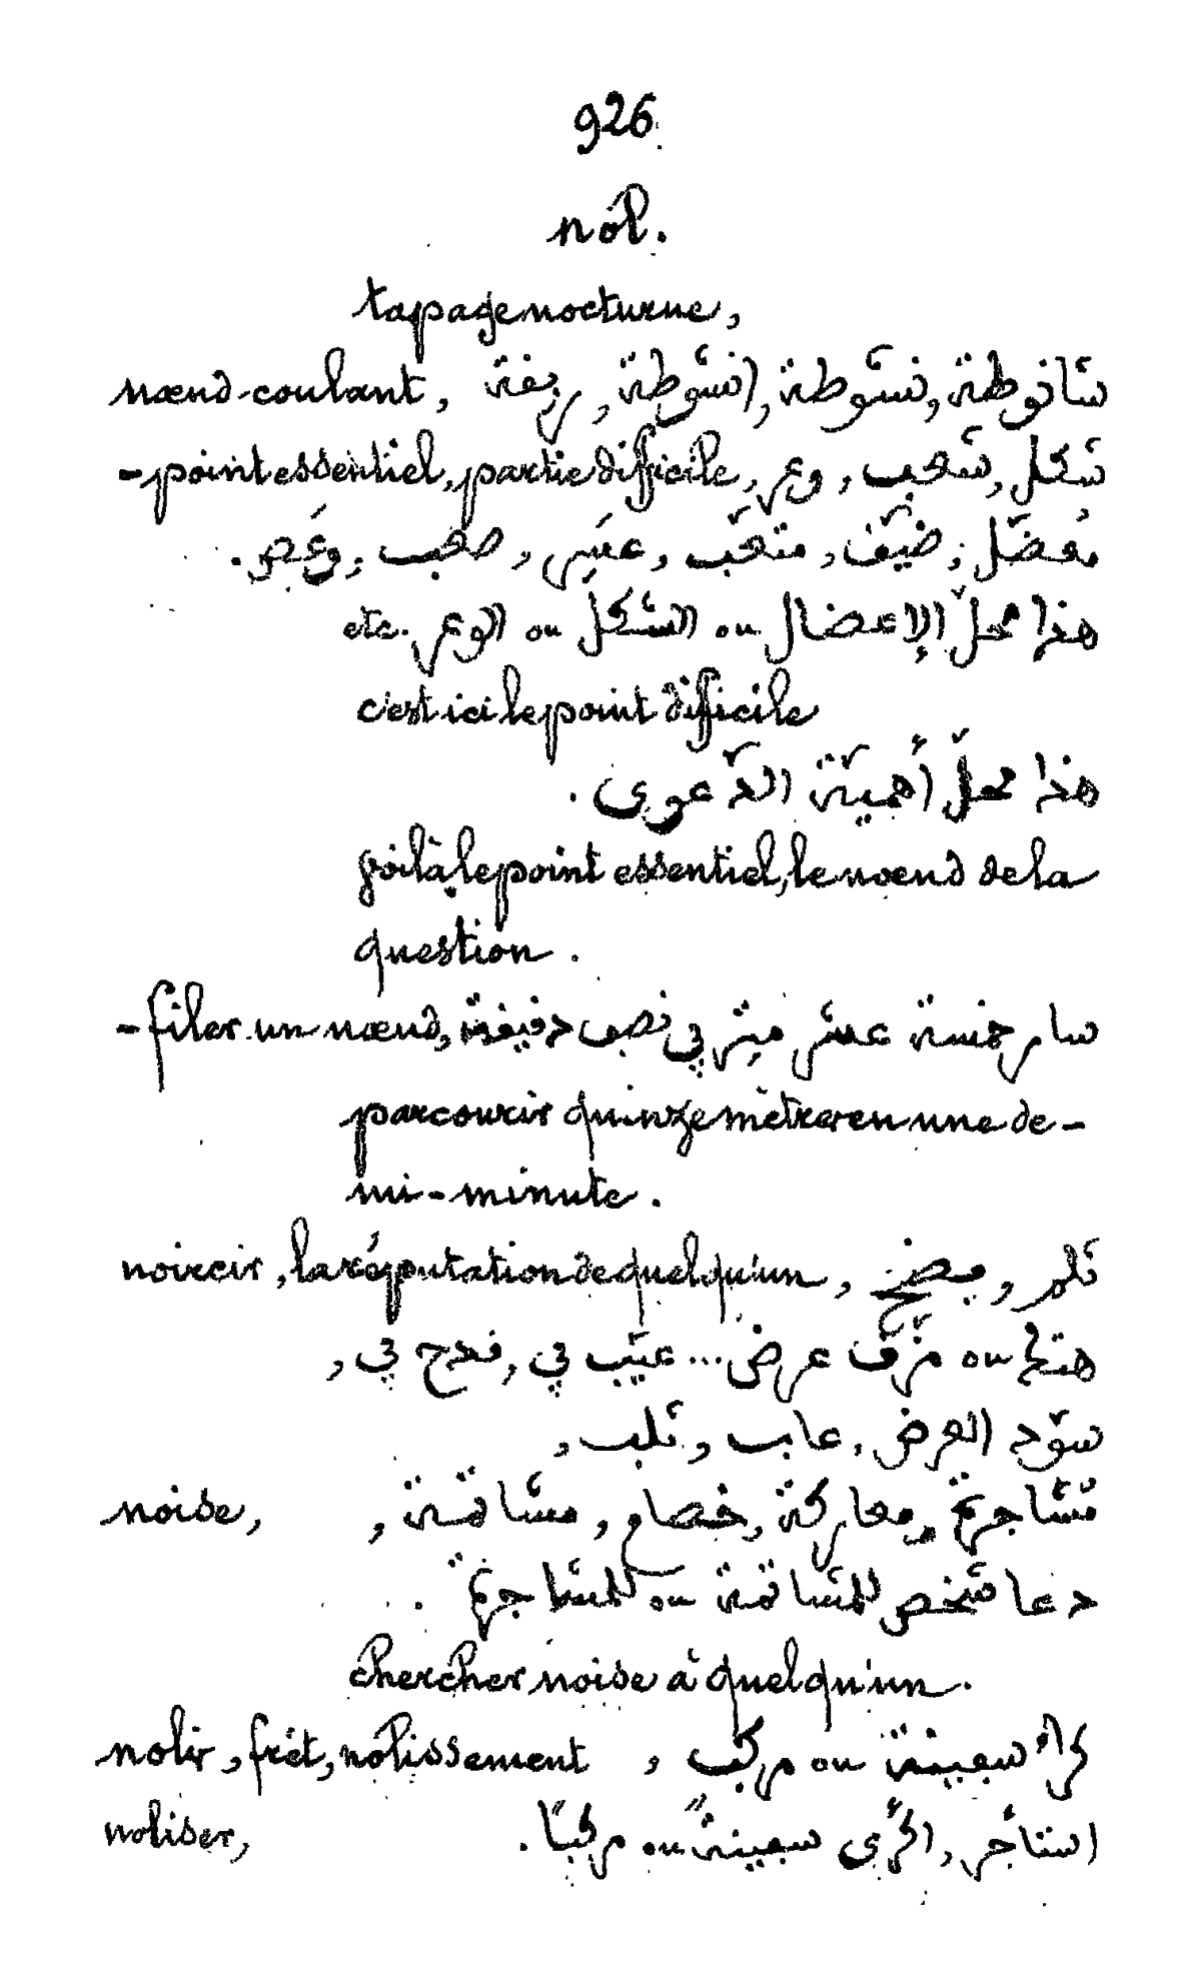 926.
nol.
tapage nocturne,
nœud-coulant, شانوطة, نشوطة, انشوطة, ربقة
-point essentiel, partie difficile, شكل, شعب, وعر,
معضل, ضيّق, متعّب, عسر, صعب, وعص.
هذا محلّ الإعضال ou الشكل ou الوعر etc.
c'est ici le point difficile
هذا محلّ أهميّة الدّعوى.
voilà le point essentiel, le nœud de la
question.
-filer un nœud, سار خمسة عشر ميتر في نصف دقيقة
parcourir quinze mètres en une de-
mi-minute.
noircir, la réputation de quelqu'un, ثلم, فضح
هتك ou مزّق عرض... عيّب في, قدح في,
سوّد العرض, عاب, ثلب,
noise, مشاجرة, معاركة, خصام, مشاتمة,
دعا شخص للمشاتمة ou للمشاجرة.
chercher noise à quelqu'un.
nolir, frêt, nolissement, كراء سفينة ou مركب
noliser, استأجر, اكرى سفينةً ou مركبًا.